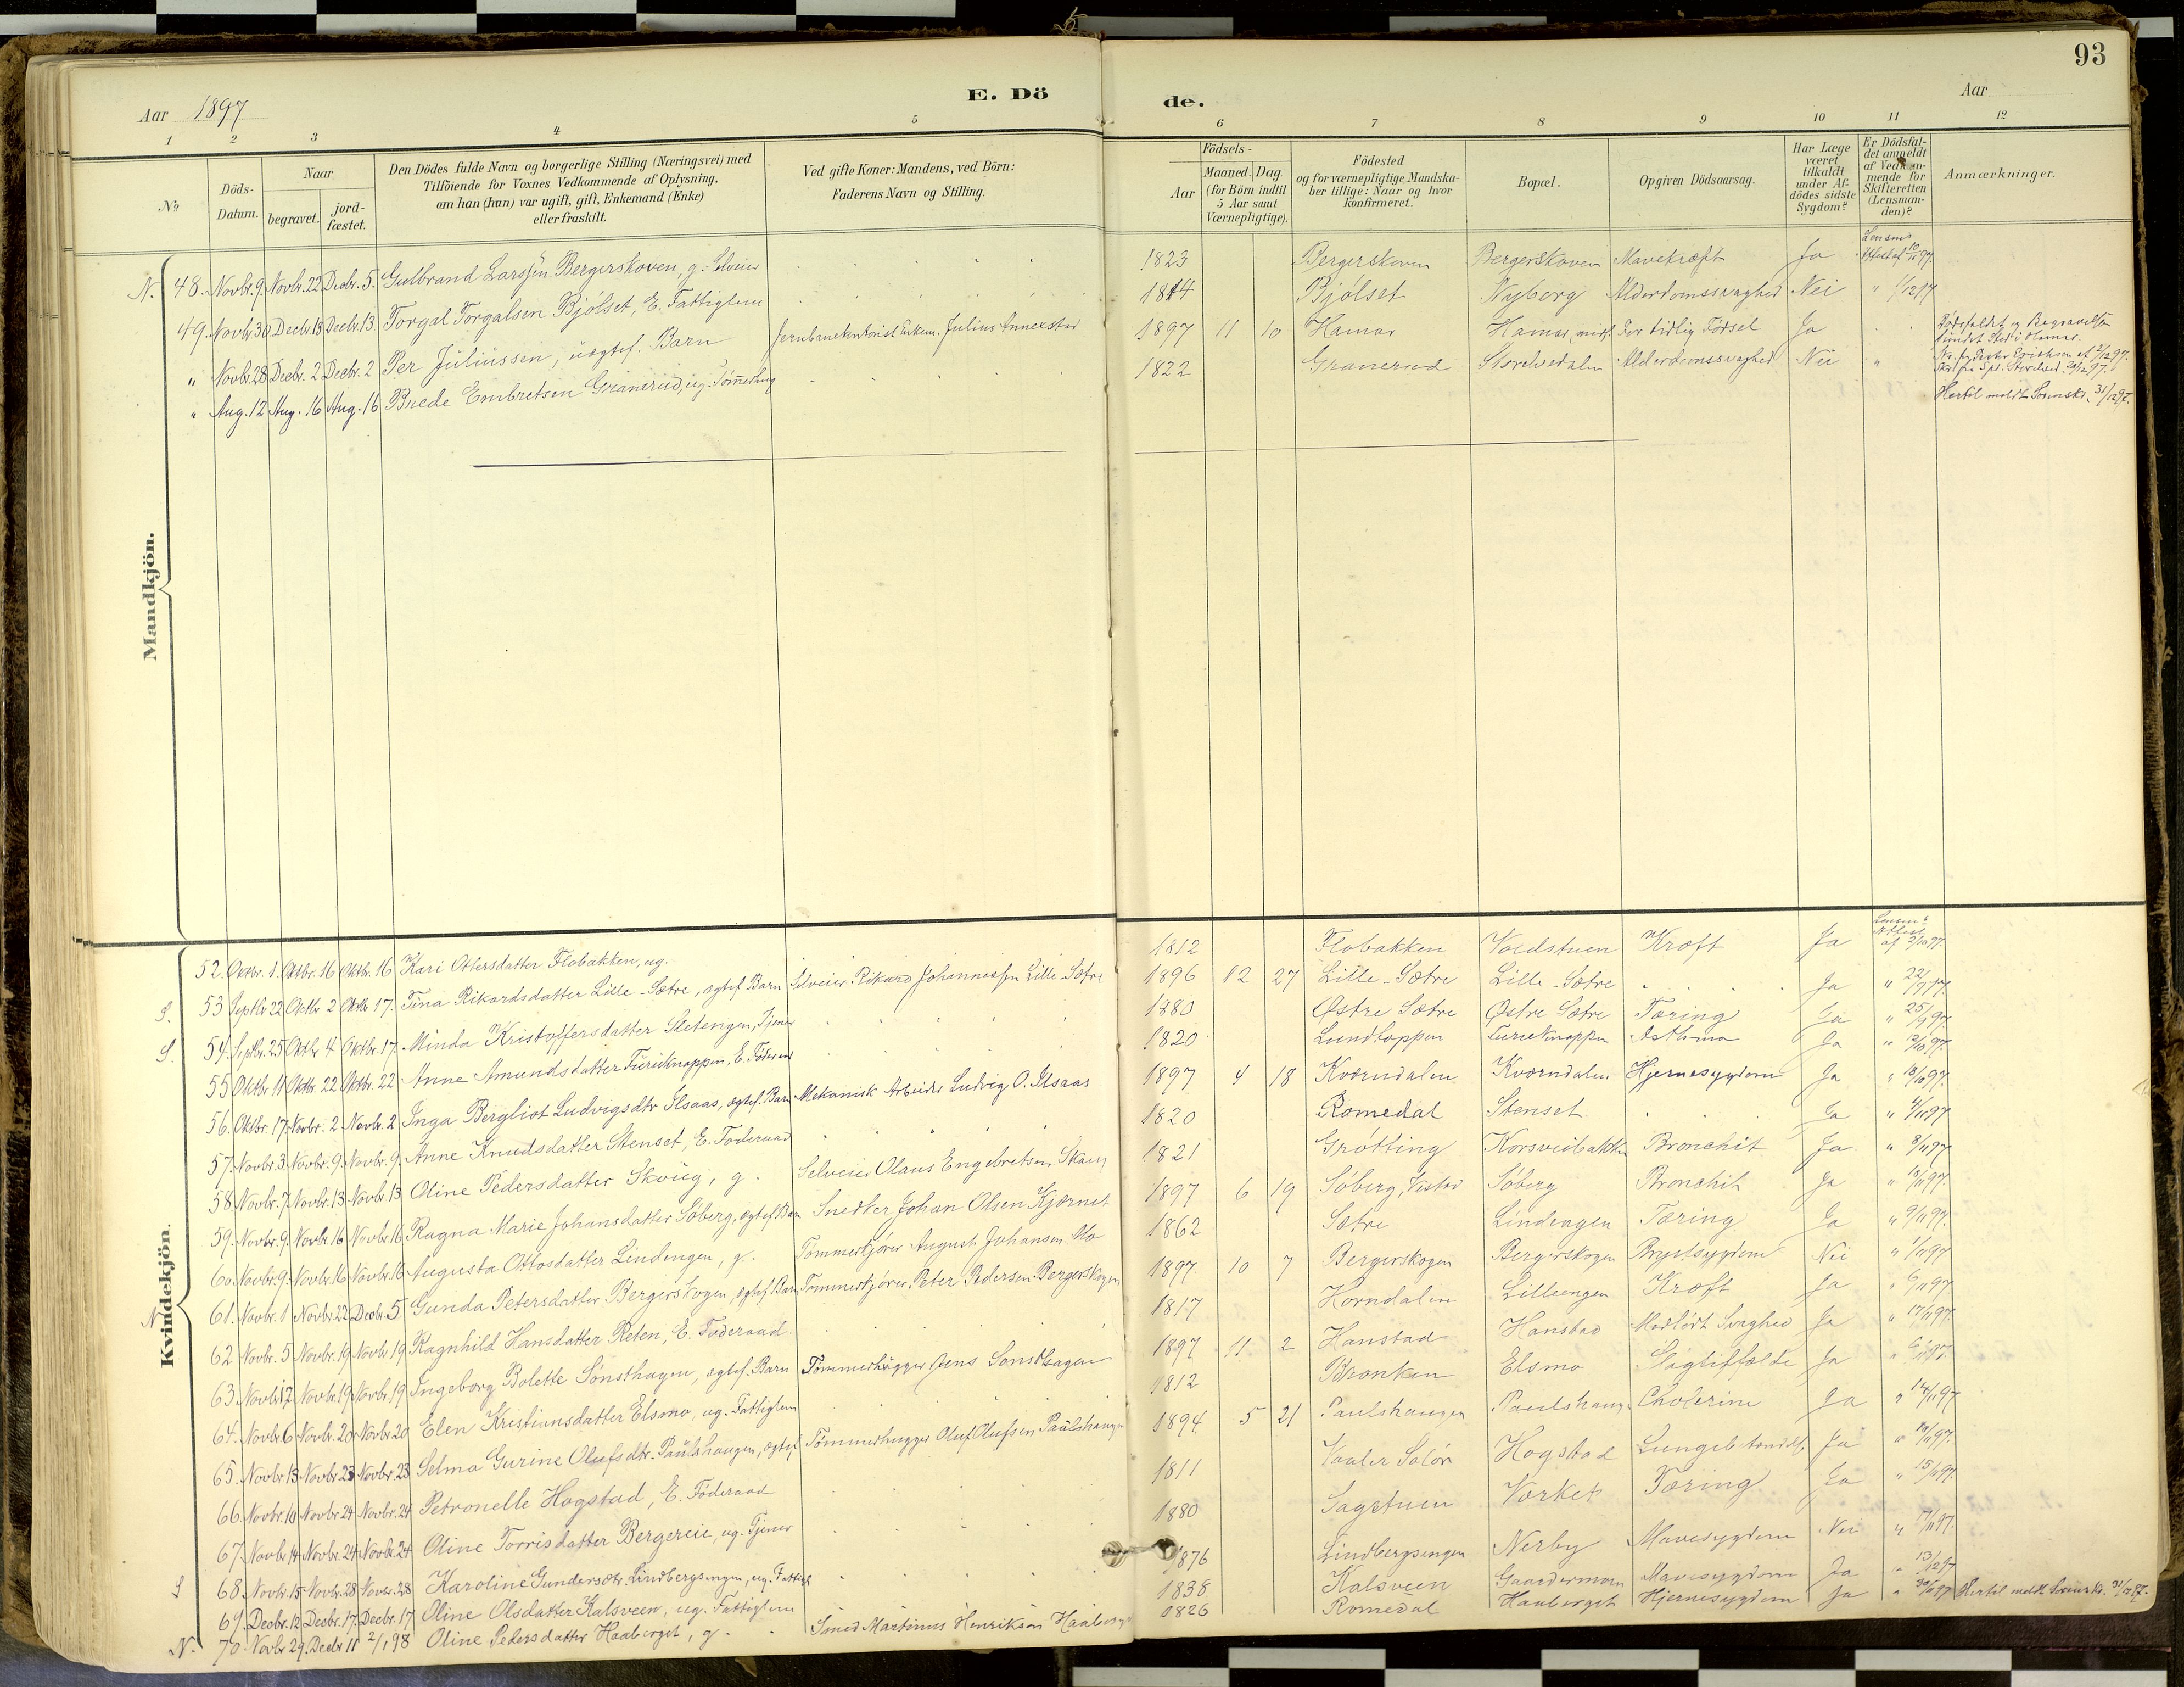 93
Aar 1897
E. Dö
de.
Aar
1 2 3 4 5 6 7 8 9 10 11 12
No
Döds-Datum.
Naar
begravet.
jord-fæstet.
Den Dödes fulde Navn og borgerlige Stilling (Næringsvei) med
Tilföiende for Voxnes Vedkommende af Oplysning,
om han (hun) var ugift, gift, Enkemand (Enke)
eller fraskilt.
Ved gifte Koner: Mandens, ved Börn:
Faderens Navn og Stilling.
Födsels-
Aar
Maaned. Dag.
(for Börn indtil
5 Aar samt
Værnepligtige).
Födested
og for værnepligtige Mandska-
ber tillige: Naar og hvor
konfirmeret.
Bopæl.
Opgiven Dödsaarsag.
Har Læge
været
tilkaldt
under Af-
dödes sidste
Sygdom?
Er Dödsfal-
det anmeldt
af Vedkom-
mende for
Skifteretten
(Lensman-
den)?
Anmærkninger.
Mandkjön.
N. 48. Novbr. 9. Novbr. 22 Decbr. 5. Gulbrand Larssen Bergerskoven, g. Selveier 1823 Bergerskoven Bergerskoven Mavekræft Ja Lensm's Attest af 10/11 97.
49. Novbr 30 Decbr. 13 Decbr. 13. Torgal Torgalsen Bjölset, E. Fattiglem 1814 Bjölset Nyborg Alderdomssvaghed Nei " 1/12 97
" Novbr. 28 Decbr. 2 Decbr. 2 Per Juliussen, uægtef. Barn Julius Annexstad 1897 11 10 Hamar Hamar For tidlig Födsel Ja Dödsfaldet og Begravelsen fundet Sted i Hamar.
" Aug. 12 Aug. 16 Aug. 16 Brede Embretsen Granerud, ug. Tömmerhug 1822 Granerud Storelvedalen Alderdomssvaghed Nei " Hertil meldt Lensmd. 31/12 97.
Kvindekjön.
52. Oktbr. 1. Oktbr. 16 Oktbr. 16 Kari Ottersdatter Flobakken, ug. 1812 Flobakken Voldstuen Kræft Ja Lensm's Attest af 2/10 97
S. 53 Septbr 22 Oktbr 2 Oktbr 17. Tina Rikardsdatter Lille-Sætre, ægtef. Barn Selveier Rikard Johannessen Lille-Sætre 1896 12 27 Lille-Sætre Lille-Sætre Ja " 22/9 97.
S. 54. Septbr. 25 Oktbr 4 Oktbr. 17. Minda Kristoffersdatter Sletengen, Tjener 1880 Østre Sætre Østre Sætre Tæring Ja " 25/9 97.
55 Oktbr 11 Oktbr. 22 Oktbr. 22 Anne Amundsdatter Furuknappen, E. Föderaad 1820 Lundtoppen Furuknappen Asthma Ja " 12/10 97.
56. Oktbr. 17 Novbr. 2 Novbr. 2 Inga Bergliot Ludvigsdtr Ilsaas, ægtef. Barn Mekanisk Arbeider Ludvig O. Ilsaas 1897 4 18 Kværndalen Kværndalen Hjernesygdom Ja " 18/10 97.
57. Novbr. 3. Novbr. 9. Novbr. 9. Anne Knudsdatter Stenset, E. Föderaad 1820 Romedal Stenset Ja " 4/11 97
58. Novbr. 7. Novbr. 13 Novbr 13 Oline Pedersdatter Skvieg, g. Selveier Olaus Engebretsen 1821 Grötting Korsveibakken Bronchit Ja " 8/11 97
59. Novbr. 9. Novbr. 16 Novbr. 16 Ragna Marie Johansdatter Söberg, ægtef Barn Snedker Johan Olsen Kjernet 1897 6 19 Söberg Söberg Bronchit Ja " 10/11 97.
60. Novbr. 9. Novbr. 16 Novbr. 16 Augusta Ottosdatter Lindengen, g. Tömmerkjörer August Johansen Mo 1862 Sætre Lindengen Tæring Ja " 9/11 97.
N. 61. Novbr. 1 Novbr. 22 Decbr. 5 Gunda Petersdatter Bergerskogen, ægtef. Barn Tömmerkjörer Peter Pedersen Bergerskogen 1897 10 7 Bergerskogen Bergerskogen Brystsygdom Nei " 1/11 97
62 Novbr. 5 Novbr. 19 Novbr 19 Ragnhild Hansdatter Reten, E. Föderaad. 1817 Horndalen Lilleengen Kræft Ja " 6/11 97
63. Novbr 12 Novbr. 19 Novbr. 19 Ingeborg Bolette Sönsthagen, ægtef. Barn Tömmerhugger Jens Sönsthagen 1897 11 2 Hanstad Hanstad Medfödt Svaghed Ja " 17/11 97.
64. Novbr. 6 Novbr. 20 Novbr. 20 Elen Kristiansdatter Elsmo, ug. Fattiglem 1812 Bronken Elsmo Slagtilfælde Ja " 6/11 97.
65. Novbr 13 Novbr. 23 Novbr. 23 Selma Gurine Olufsdtr. Paulshaugen, ægtef Tömmerhugger Oluf Olufsen Paulshaugen 1894 5 21 Paulshaugen Paulshaug Cholerine Ja " 14/11 97
66. Novbr. 10 Novbr. 24 Novbr. 24 Petronelle Hogstad, E. Föderaad 1811 Vaaler Solör Hogstad Lungebetændels. Ja " 10/11 97.
67. Novbr 14 Novbr. 24 Novbr. 24 Oline Torrisdatter Bergereie, ug. Tjener 1880 Sagstuen Værket Tæring Ja " 15/11 97
S 68. Novbr. 15 Novbr. 28 Novbr. 28 Karoline Gundersdtr. Lindbergsengen, ug. Fattigl. 1876 Lindbergsengen Nerby Mavesygdom Nei " 17/11 97.
69. Decbr. 12 Decbr. 17. Decbr. 17 Oline Olsdatter Kalsveen, ug. Fattiglem 1838 Kalsveen Gaardermoen Mavesygdom Ja " 13/12 97
N. 70. Novbr 29. Decbr 11 2/1 98 Oline Pedersdatter Haaberget, g. Smed Martinus Henriksen Haaberget 1826 Romedal Haaberget Hjernesygdom Ja " 30/11 97 Hertil meldt Lensmd. 31/12 97.